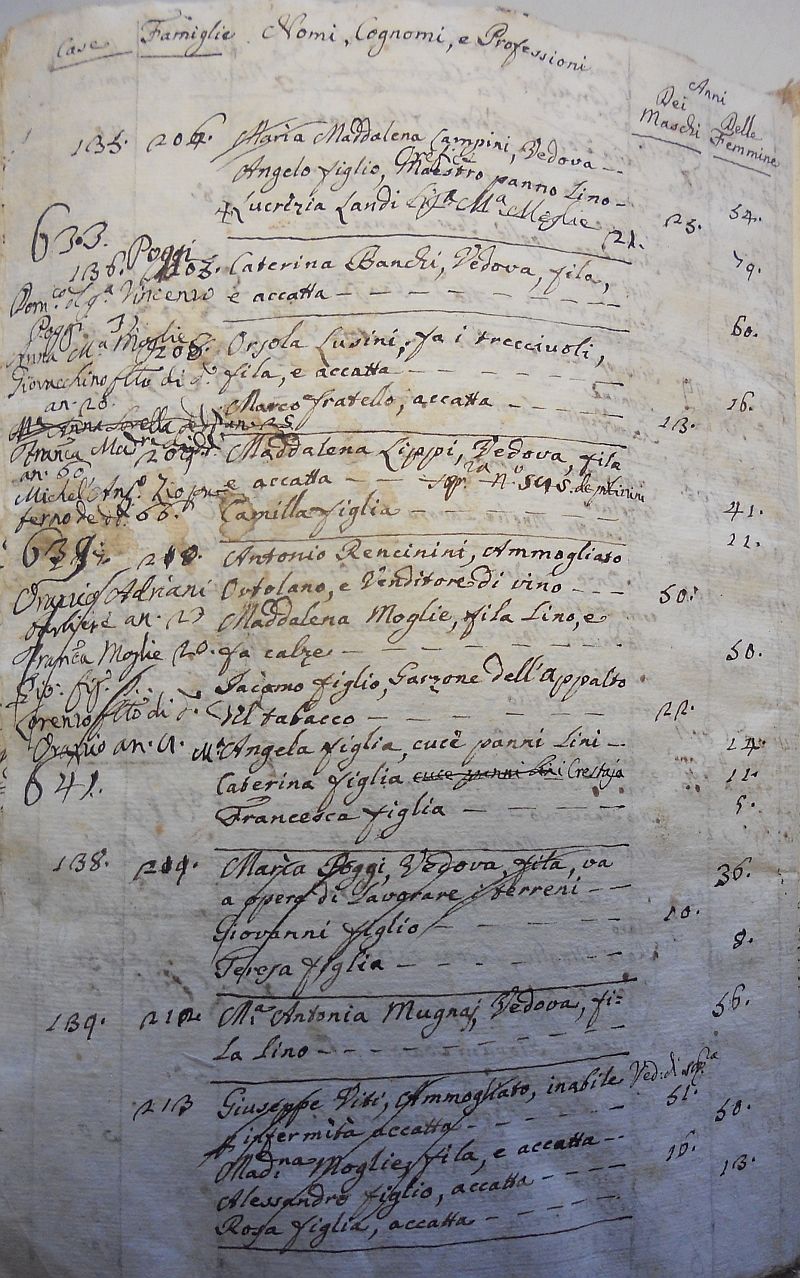 Case Famiglie Nomi, Cognomi, e Professioni Anni
Dei Maschi Delle Femmine
135. 204. Maria Maddalena Campini, Vedova — 54.
Angelo figlio, Maestro panno Lino — 25.
+ Lucrizia Landi Mª Moglie 21.
633.
136. 205. Caterina Banchi, Vedova, fila, 79.
e accatta — — — — —
Poggi
Vincenzo
Poggi
208. Orsola Lusini, fa i trecciuoli, 60.
Anna Mª Moglie
fila, e accatta — — — — —
Giovacchino fllo di dº
an. 28.
Marco fratello, accatta — — — 13. 16.
Franca Madre
an. 60
209. Maddalena Lippi, Vedova, fila
e accatta — — 41.
Michel Angº Zio pa-
terno de dd. 66.
Camilla figlia — — — — — 11.
639.
210. Antonio Rencinini, Ammogliato
Orazio Adriani
Ortolano, e Venditore di vino — — — 50.
an. 27
Maddalena Moglie, fila Lino, e
Franca Moglie 20.
fa calze — — — — — 50.
Jacomo figlio, Garzone dell'Appalto
Lorenzo fllo di dº
del tabacco — — — — 22.
Orazio an.
Mª Angela figlia, cuce panni Lini — 14.
641.
Caterina figlia cuce panni lini Crestaja 11.
Francesca figlia — — — — 5.
138. 211. Maria Poggi, Vedova, fila, va 36.
a opera di Lavorare i terreni — —
Giovanni figlio — — — — 10.
Teresa figlia — — — — — 8.
139. 212. Mª Antonia Mugnaj, Vedova, fi= 56.
la Lino — — — — — —
213 Giuseppe Viti, Ammogliato, inabile
infermità accatta — — — — 51.
Moglie, fila, e accatta — — 50.
Alessandro figlio, accatta — — — 16.
Rosa figlia, accatta — — — — 13.